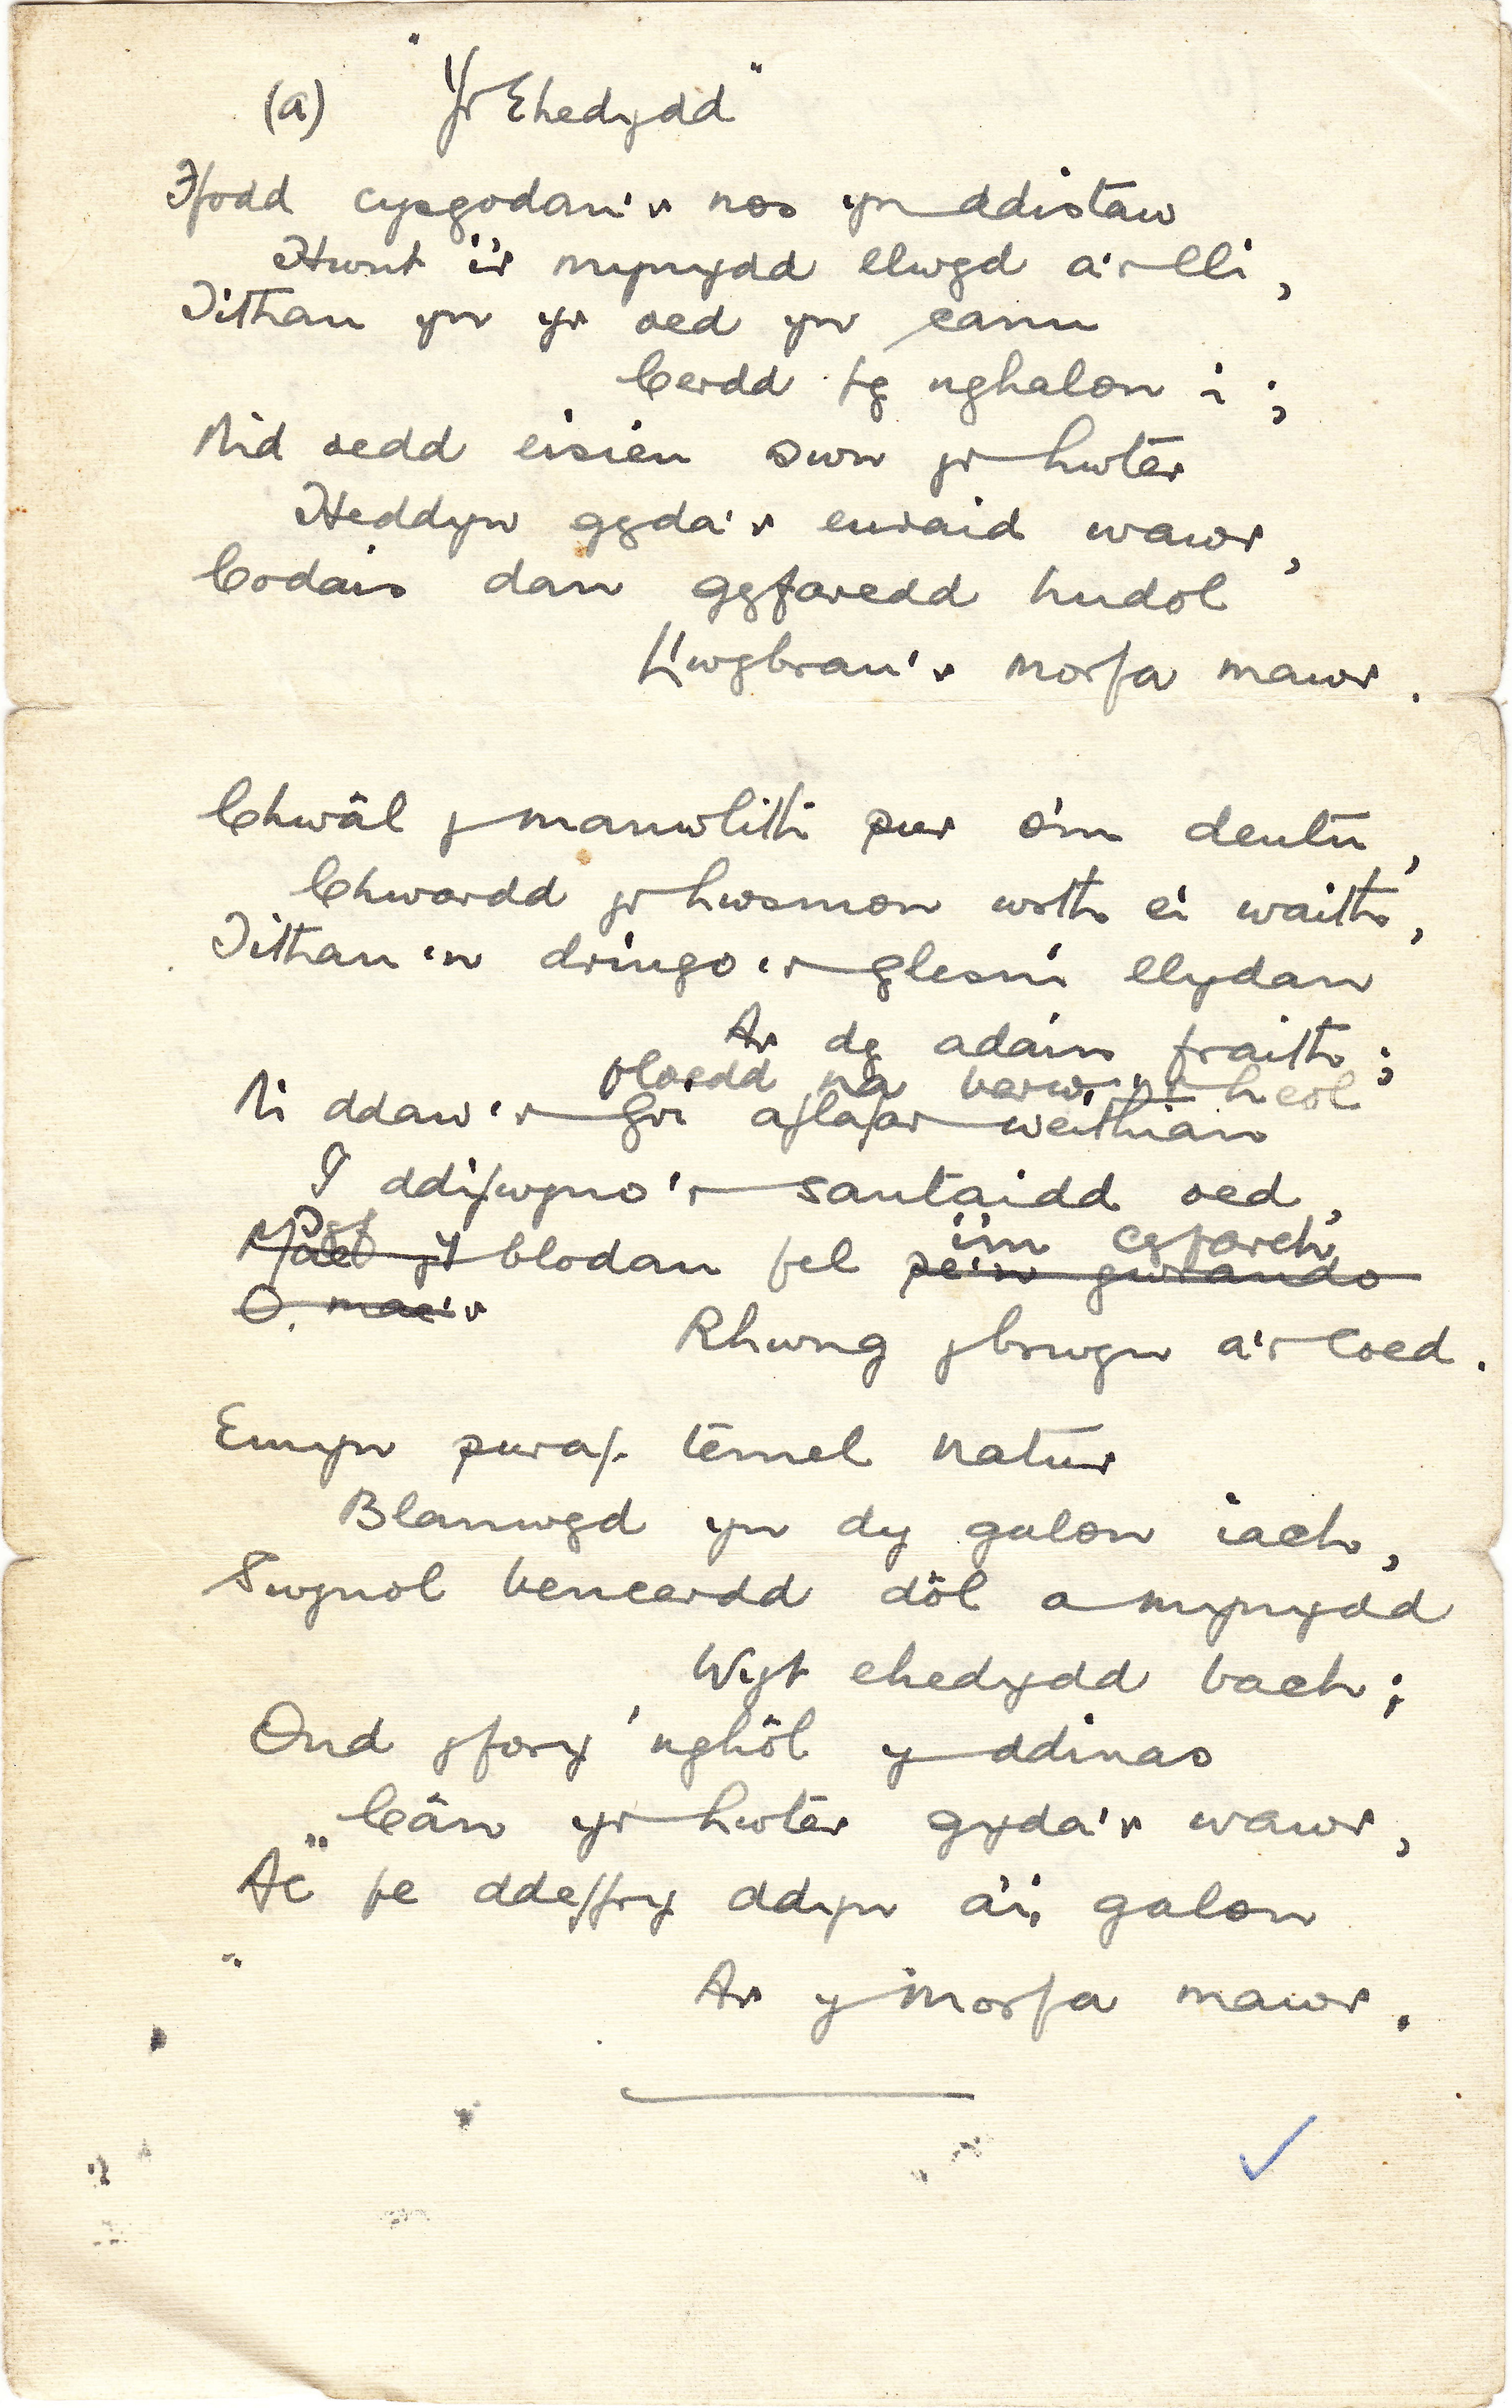 (a) "Yr Ehedydd"
Ffodd cysgodau'r nos yn ddistaw
Hwnt i'r mynydd llwyd a'r lli,
Tithau yn yr oed yn canu
Cerdd fy nghalon i;
Nid oedd eisieu swn yr hwter
Heddyw gyda'r euraid wawr,
Codais dan gyfaredd hudol
Llwybrau'r morfa mawr.
Chwâl y manwlith pur o'm deutu,
Chwardd yr hwsmon wrth ei waith,
Tithau'n dringo'r glesni llydan
Ar dy adain fraith;
floedd na berw'r heol
Ni ddaw'r gri aflafar weithian
I ddifwyno'r santaidd oed,
i'm cyfarch
Mae y blodau fel pe'n gwrando
O, mae'r
Rhwng y brwyn a'r coed.
Emyn puraf temel natur
Blanwyd yn dy galon iach,
Swynol bencerdd dôl a mynydd
Wyt ehedydd bach;
Ond yfory 'nghôl y ddinas
Cân yr hwter gyda'r wawr,
Ac fe ddeffry ddyn a'i galon
Ar y morfa mawr.